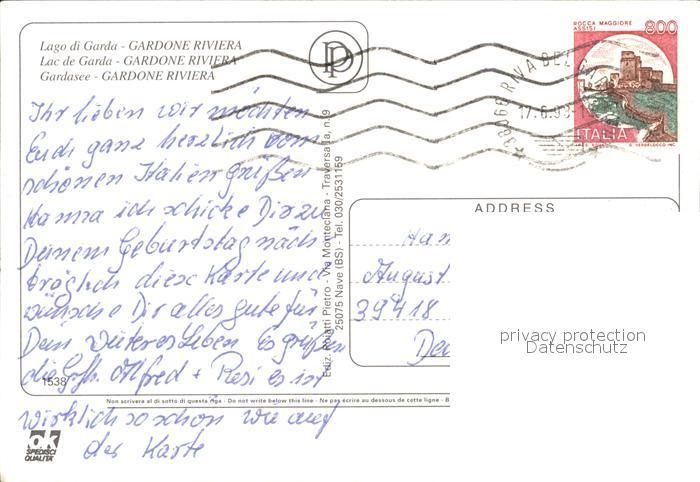 Lago di Garda - GARDONE RIVIERA
Lac de Garda - GARDONE RIVIERA
Gardasee - GARDONE RIVIERA
PP
ROCCA MAGGIORE
ASSISI
800
ITALIA
38066 RIVA DEL GA
17.6.93
Ihr lieben wir möchten
Euch ganz herzlich vom
schönen Italien grüßen
Hanna ich schicke Dir zu
Deinem Geburtstag nach
träglich diese Karte und
wünsche Dir alles gute für
Dein weiteres Leben Es grüßen
die Alfred + Resi es ist
wirklich so schön wie auf
der Karte
Ediz. Rolatti Pietro - Via Monteclana - Traversa Ia, n. 9
25075 Nave (BS) - Tel. 030/2531159
ADDRESS
Han
August
39418
Deu
privacy protection
Datenschutz
1538
Non scrivere al di sotto di questa riga - Do not write below this line - Ne pas écrire au dessous de cette ligne - B
ok
SPEDISCI
QUALITA'